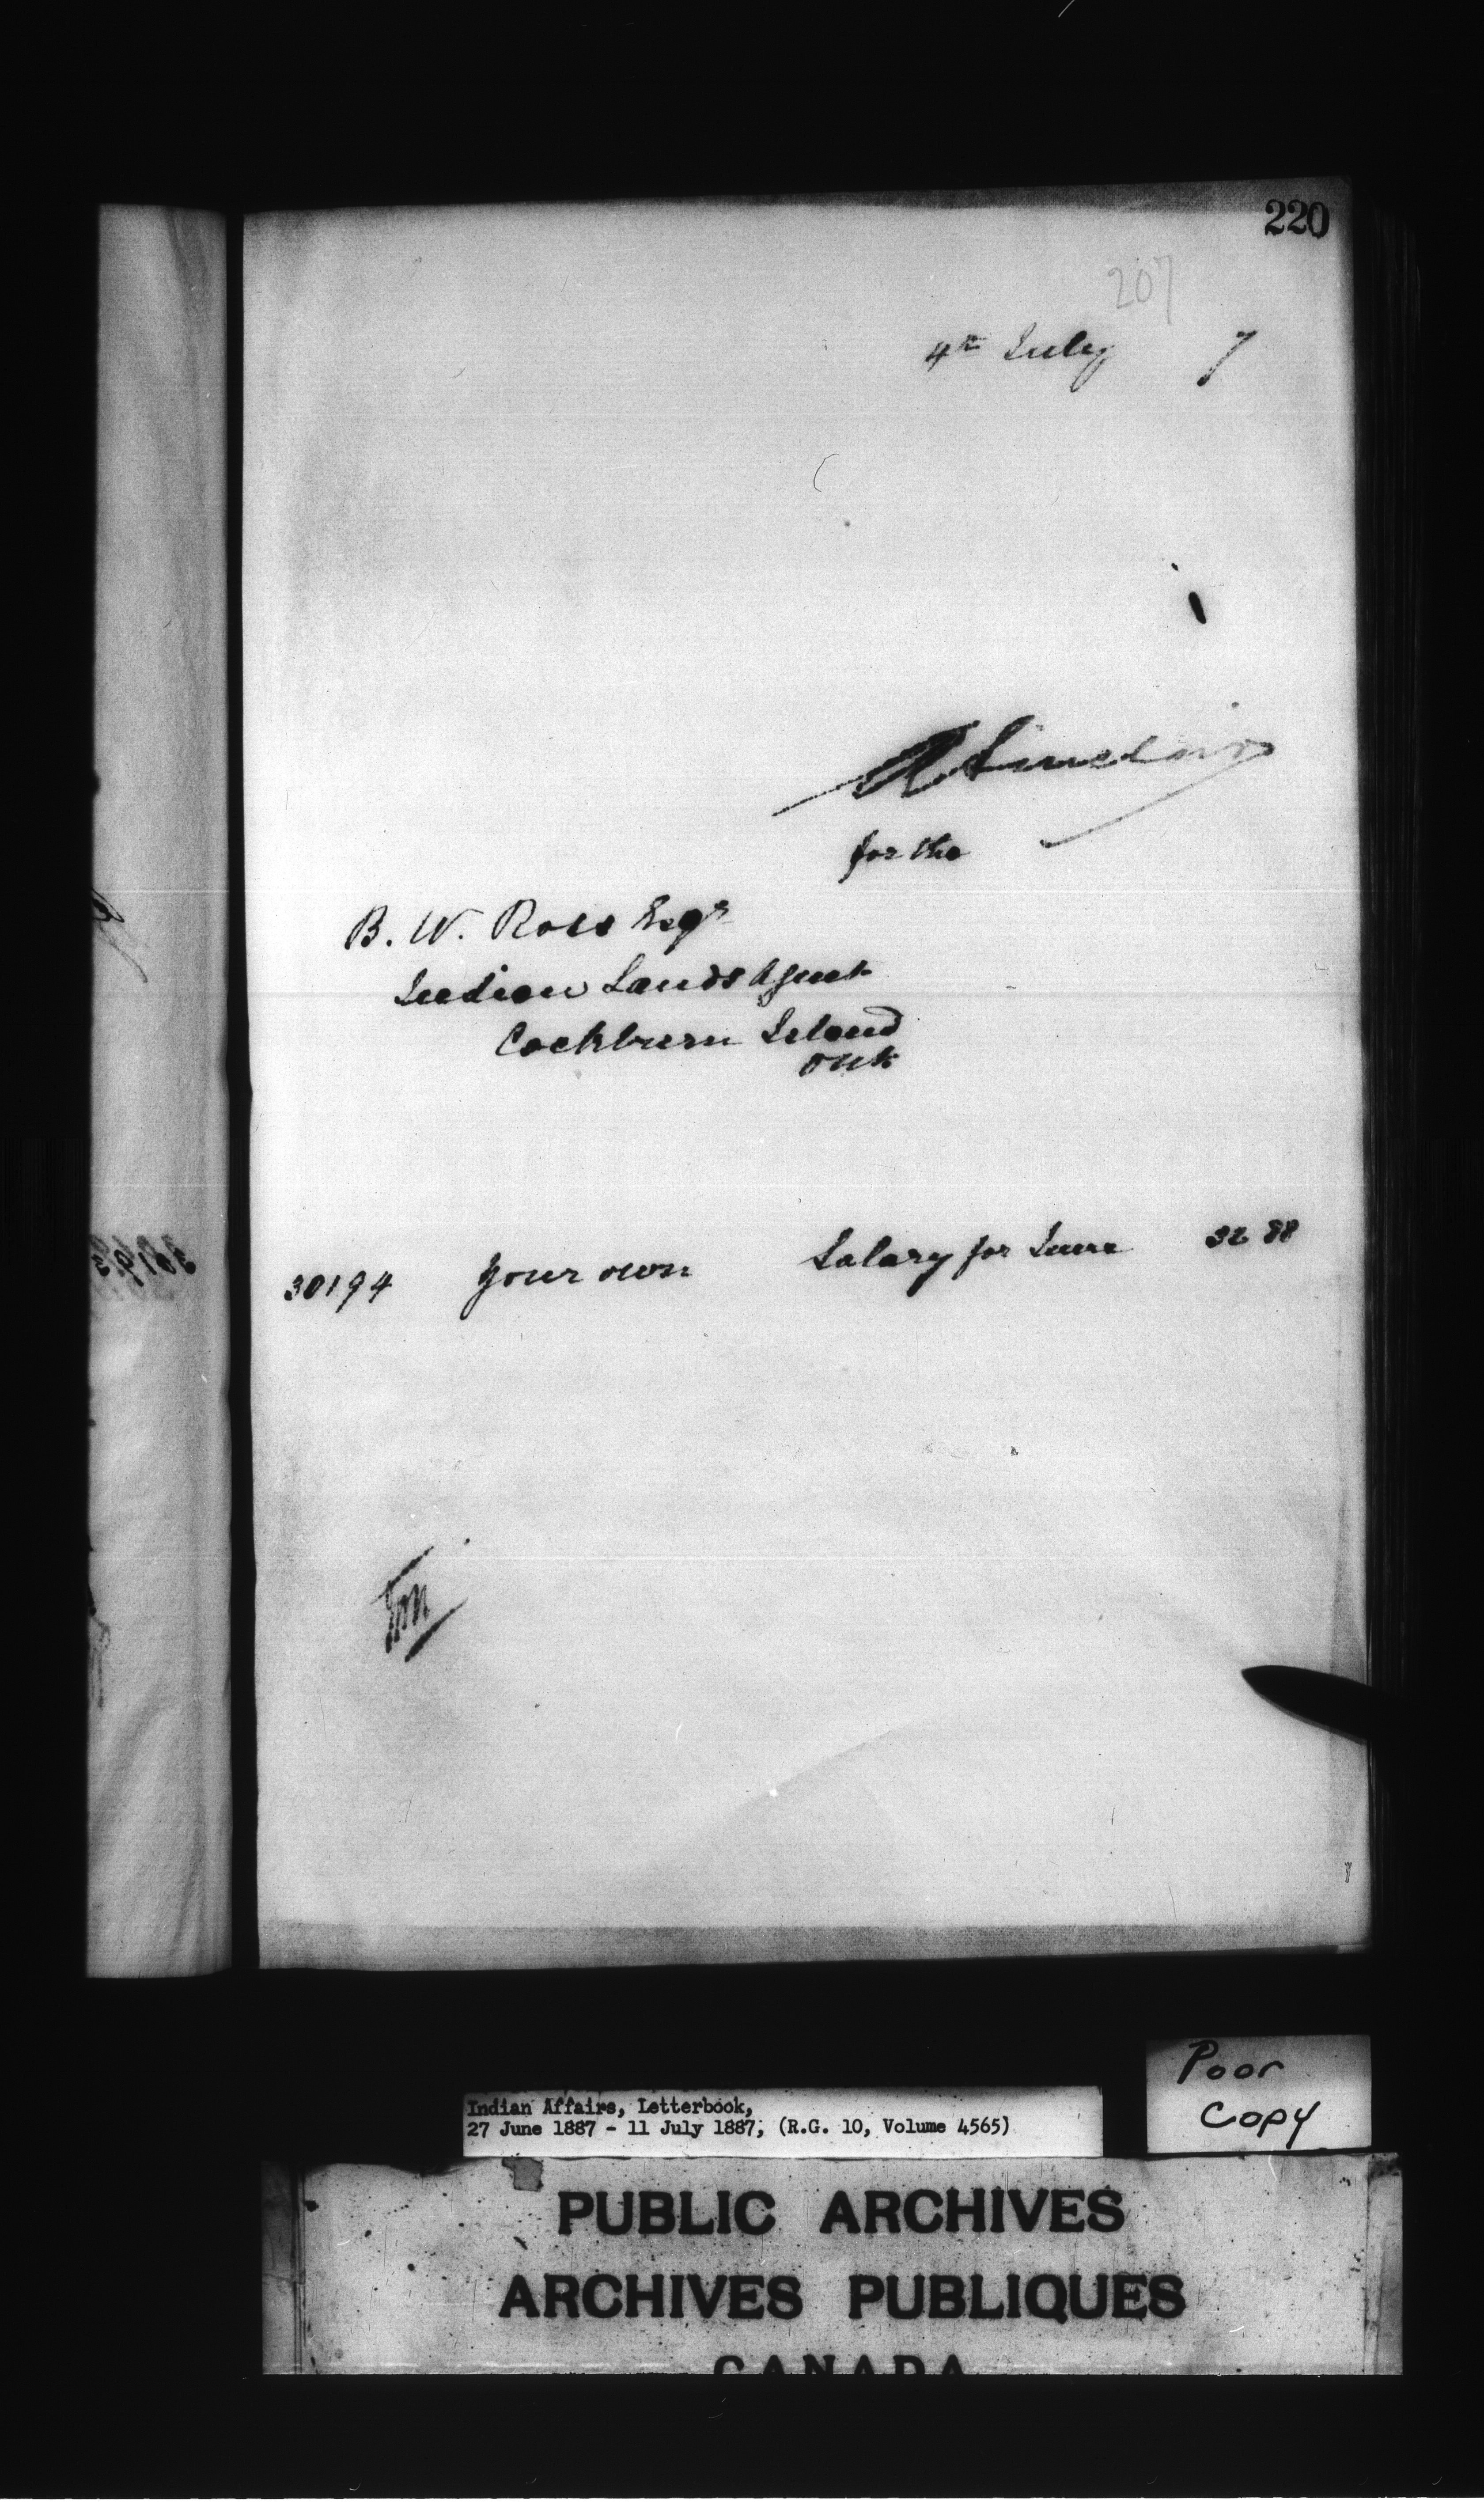 220
207
4th July 7
A Sinclair
for the
B. W. Ross Esqr
Indian Lands Agent
Cockburn Island
Ont
30194 your own Salary for June 32 88
Poor
Copy
Indian Affairs, Letterbook,
27 June 1887 - 11 July 1887, (R.G. 10, Volume 4565)
PUBLIC ARCHIVES
ARCHIVES PUBLIQUES
CANADA